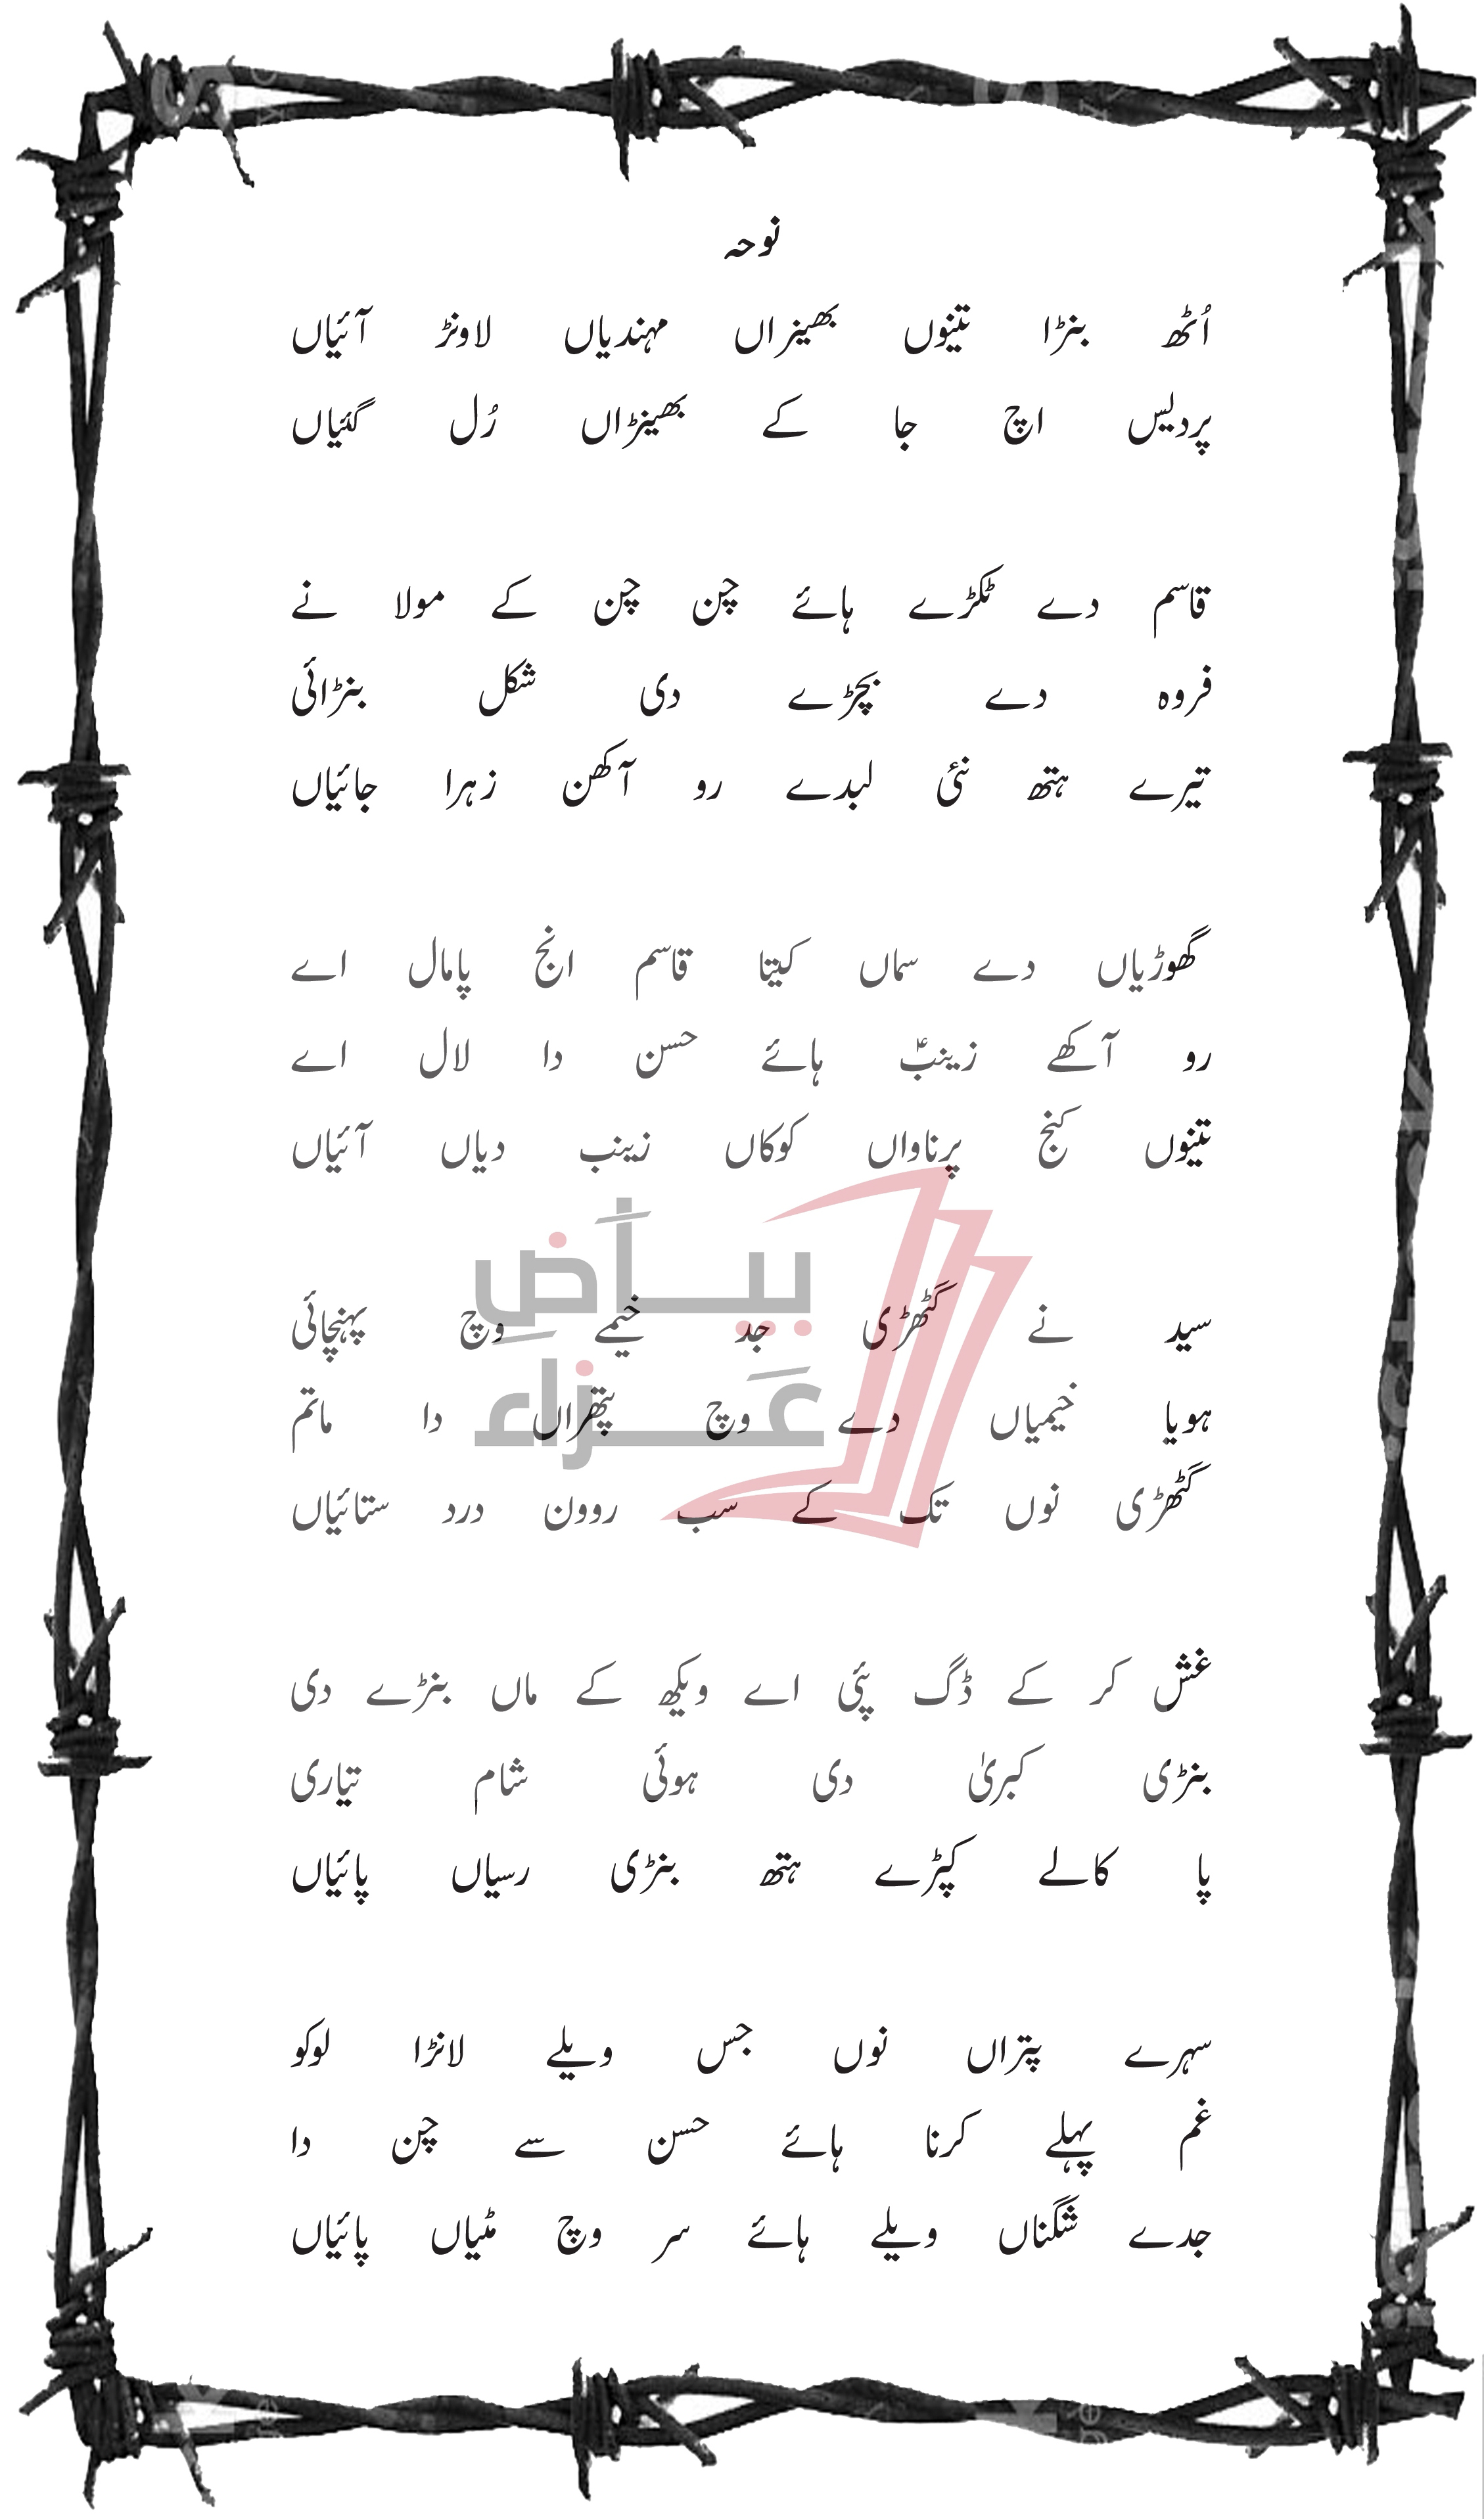 نوحہ
اُٹھ بنڑا تینوں بھینراں مہندیاں لاونڑ آئیاں
پردیس اچ جا کے بھینڑاں رُل گئیاں
قاسم دے ٹکڑے ہائے چن چن کے مولا نے
فروہ دے بچڑے دی شکل بنڑائی
تیرے ہتھ نئی لبدے رو آکھن زہرا جائیاں
گھوڑیاں دے سماں کیتا قاسم انج پامال اے
رو آکھے زینبؑ ہائے حسن دا لال اے
تینوں کنج پرناواں کوکاں زینب دیاں آئیاں
بیاضِ
عزاء
سید نے گٹھڑی جد خیمے وچ پہنچائی
ہویا خیمیاں دے وچ پتھراں دا ماتم
گٹھڑی نوں تک کے سب روون درد ستائیاں
غش کر کے ڈگ پئی اے ویکھ کے ماں بنڑے دی
بنڑی کبریٰ دی ہوئی شام تیاری
پا کالے کپڑے ہتھ بنڑی رسیاں پائیاں
سہرے پتراں نوں جس ویلے لانڑا لوکو
غم پہلے کرنا ہائے حسن سے چن دا
جدے شگناں ویلے ہائے سر وچ مٹیاں پائیاں